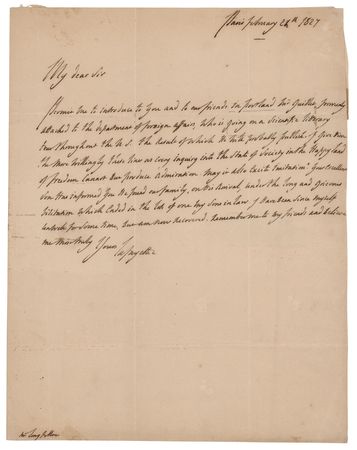 Paris february 28th 1827
My dear Sir
Permit me to introduce to You and to our friends in portland Mr Guillet, formerly
attached to the department of foreign affairs, Who is going on a Scientific literary
tour throughout the U.S. the Result of Which He Will probably publish. I give Him
the More Willingly these lines as Every Enquiry into the State of Society in the Happy land
of freedom Cannot But produce Admiration may it also Excite imitation. Your Excellent
Son Has informed You He found our family, on His Arrival, under the long and grievous
Which Ended in the loss of one my Son in law. I Have Been Since Myself
for Some time, But am now Recovered. Remember me to my friends and Believe
me Most truly Yours
Lafayette
Mr